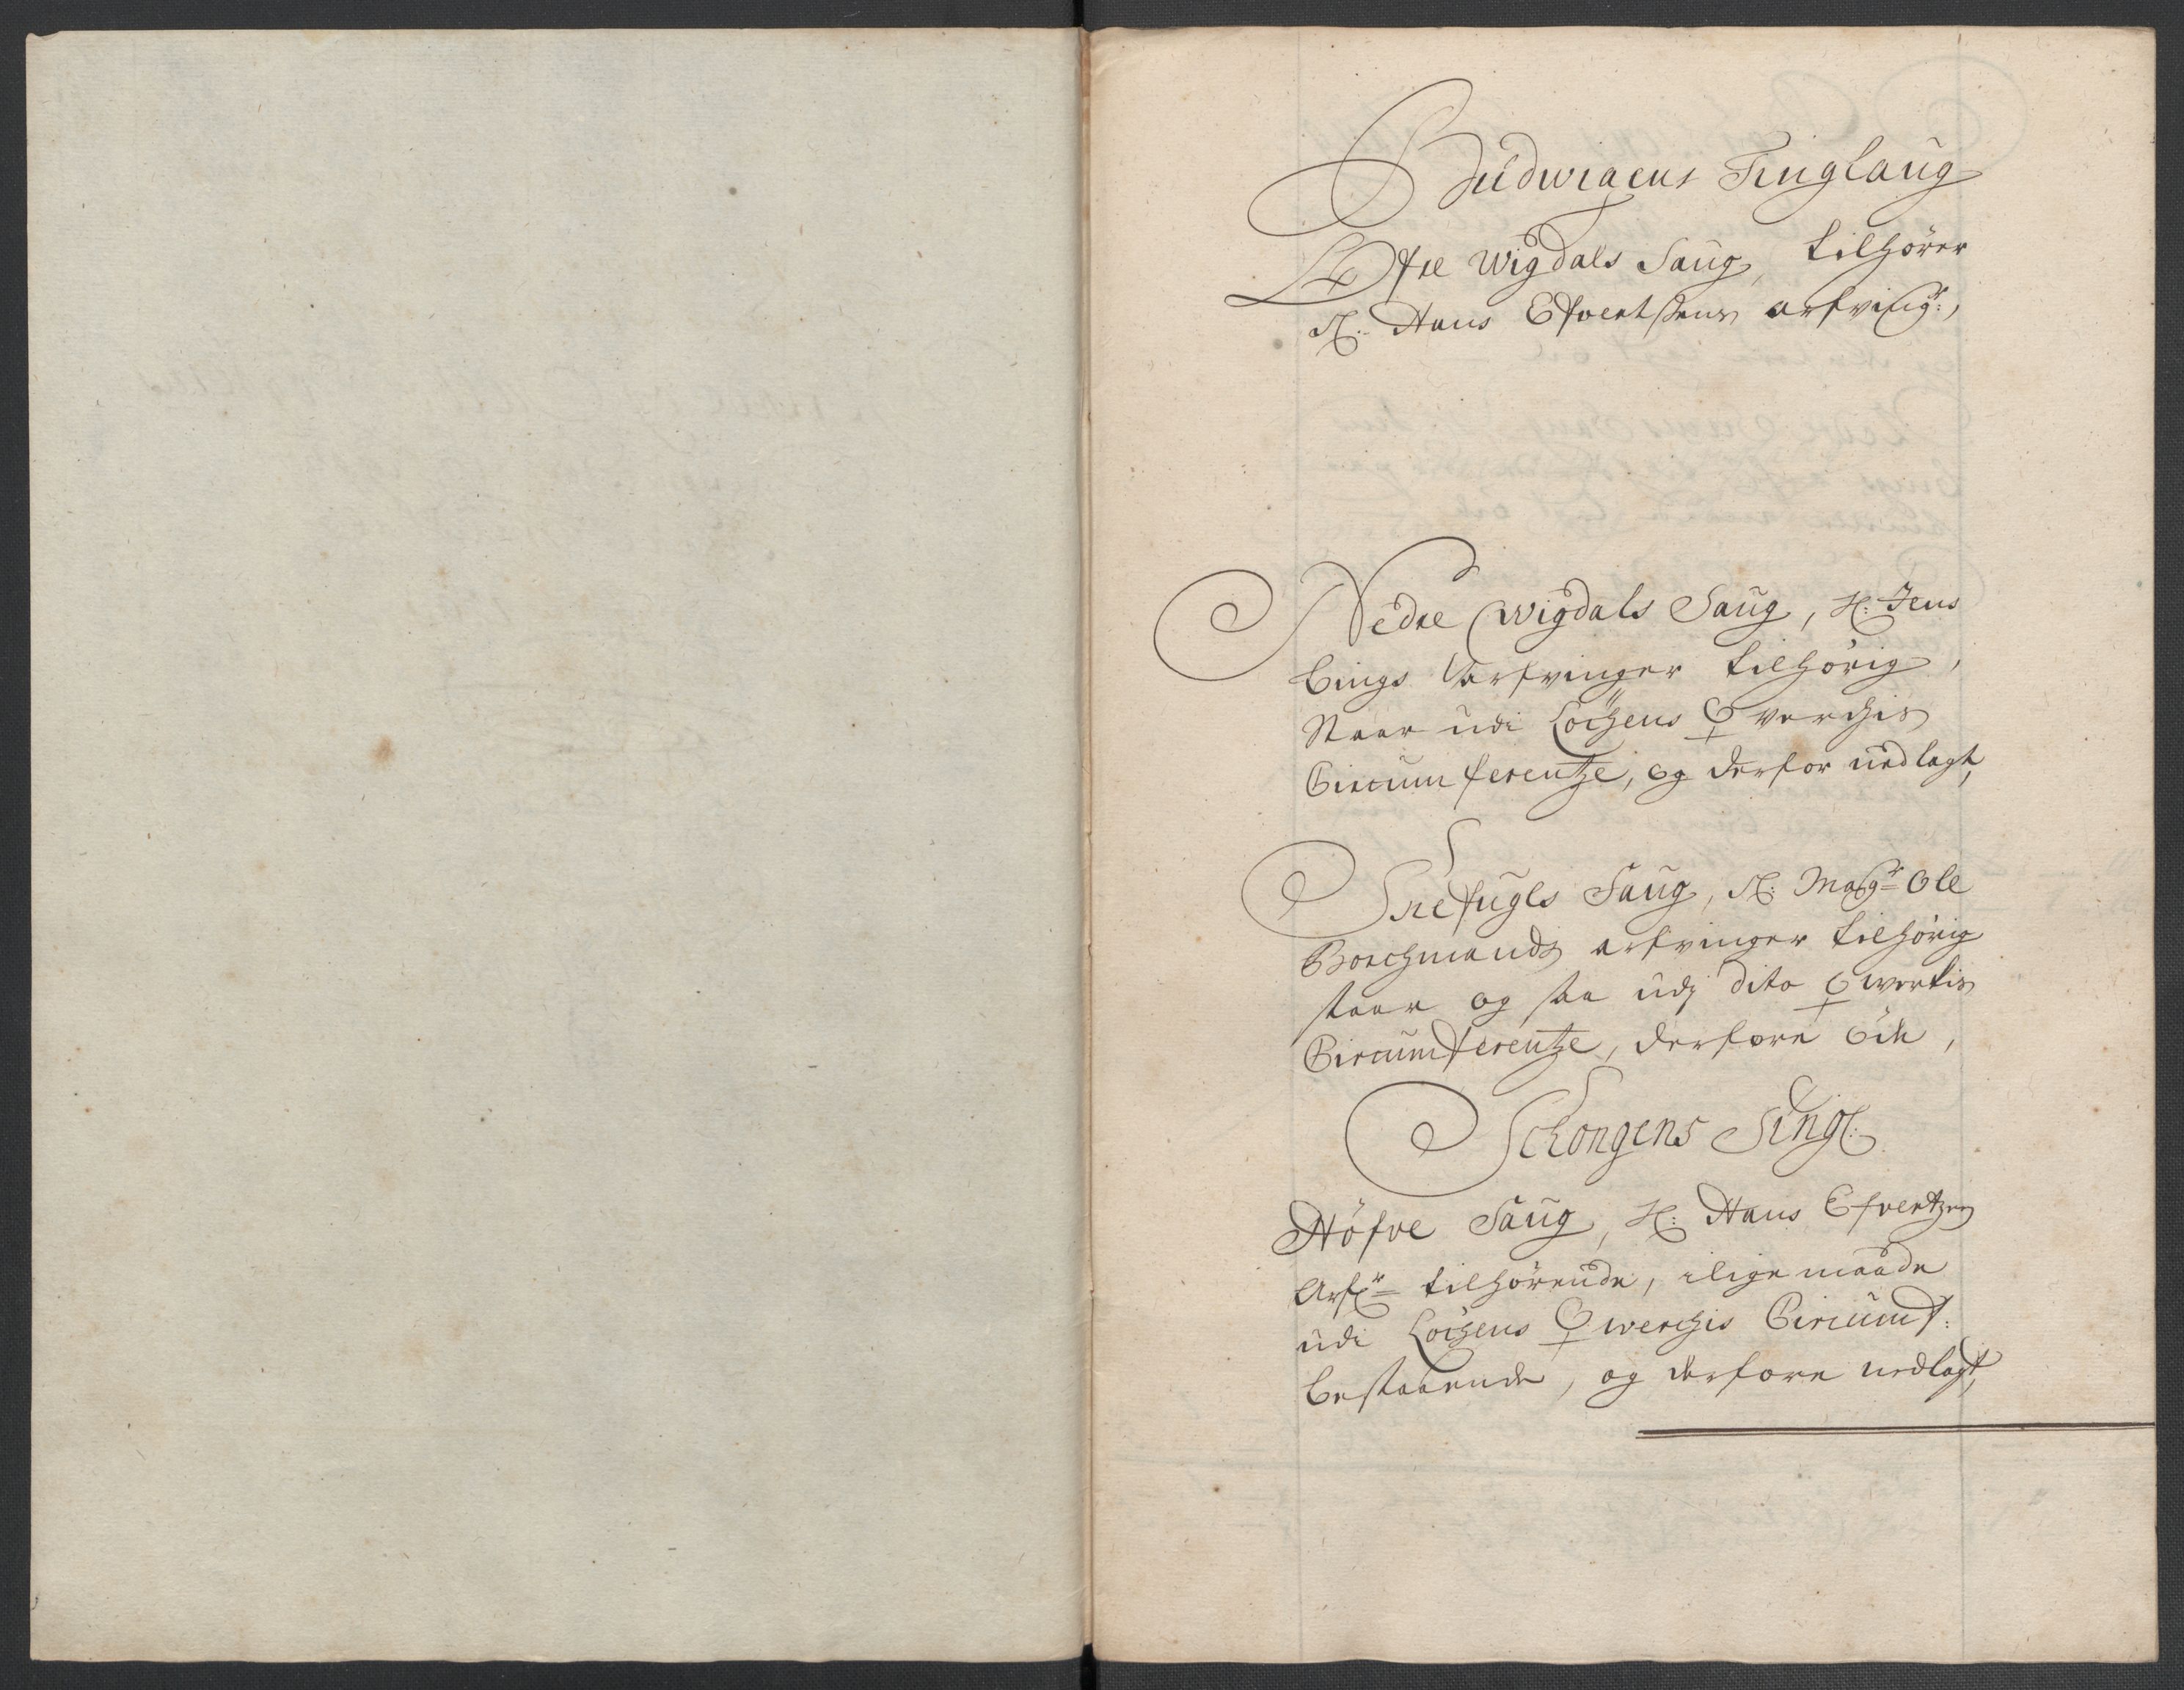 Budwigens Tinglaug
Øfre Wigdals Saug, tilhører
Sl: Hans Efvertsens arfving:,
Nedre Wigdals Saug, Sl: Jens
Bings Arfvinger tilhørig,
Staar udi Løchens ♀ verchis
Circumferentze, og derfor nedlagt,
Snefugls Saug, Sl: Magr Ole
Borchmands arfvinger tilhørig
staar og saa udj dito ♀ werkis
Circumferentze, derfore øde,
Schongens Tingl:
Høfve Saug, Sl: Hans Efvertzen
Arfr tilhørende, iligemaade
udi Lochens ♀ werchis Circumf:
bestaaende, og derfore nedlagt,